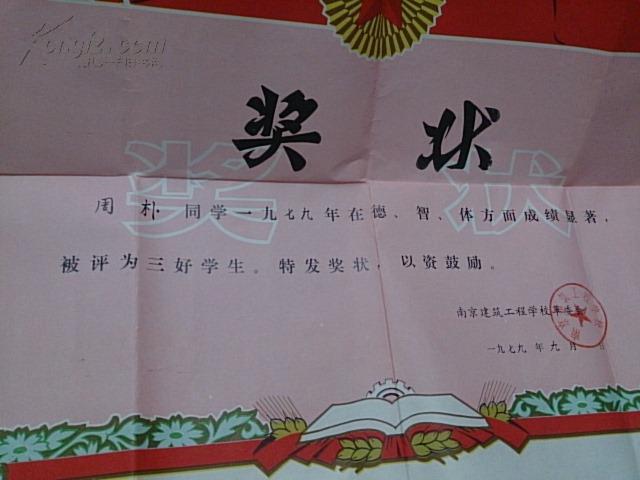 kongfz.com
奖状
奖状
周朴 同学一九七九年在德、智、体方面成绩显著，
被评为三好学生。特发奖状，以资鼓励。
南京建筑工程学校革委会
一九七九年九月 日